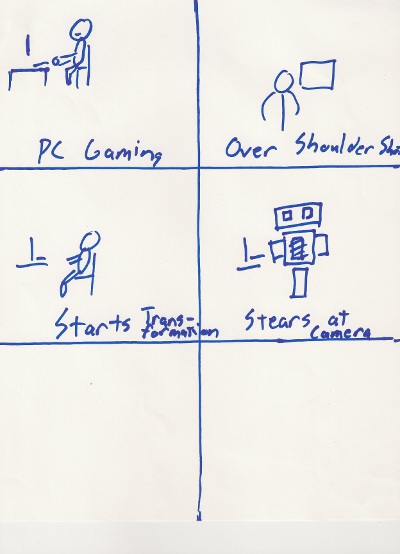 PC Gaming
Over Shoulder Sho
Starts Trans-
formation
Stears at
Camera